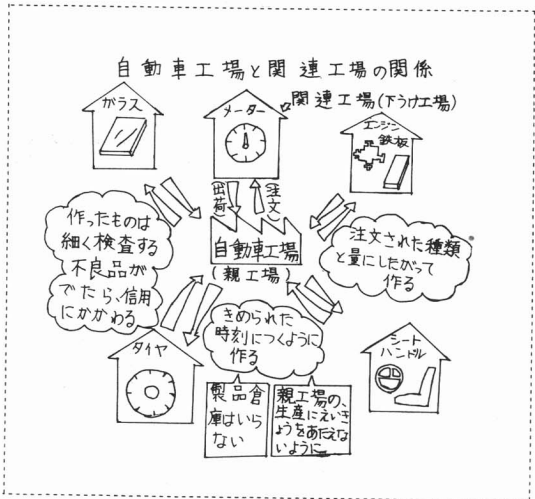 自動車工場と関連工場の関係
ガラス
メーター
関連工場(下うけ工場)
エンジン
鉄板
出荷
注文
作ったものは
細く検査する
不良品が
でたら、信用
にかかわる
自動車工場
(親工場)
注文された種類
と量にしたがって
作る
きめられた
時刻につくように
作る
タイヤ
シート
ハンドル
製品倉
庫はいら
ない
親工場の、
生産にえいき
ょうをあたえな
いように